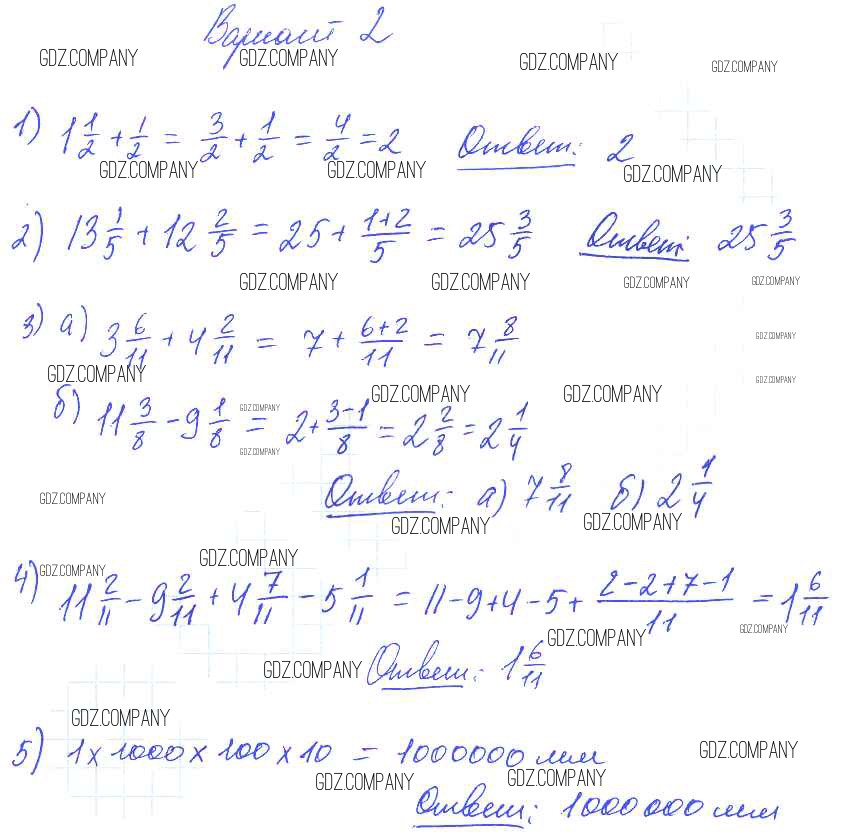 Вариант 2
GDZ.COMPANY GDZ.COMPANY GDZ.COMPANY GDZ.COMPANY
1) 1 1/2 + 1/2 = 3/2 + 1/2 = 4/2 = 2 Ответ: 2
GDZ.COMPANY GDZ.COMPANY GDZ.COMPANY
2) 13 1/5 + 12 2/5 = 25 + (1+2)/5 = 25 3/5 Ответ: 25 3/5
GDZ.COMPANY GDZ.COMPANY GDZ.COMPANY GDZ.COMPANY
3) а) 3 6/11 + 4 2/11 = 7 + (6+2)/11 = 7 8/11
GDZ.COMPANY
GDZ.COMPANY GDZ.COMPANY
GDZ.COMPANY GDZ.COMPANY
GDZ.COMPANY
б) 11 3/8 - 9 1/8 = 2 + (3-1)/8 = 2 2/8 = 2 1/4
GDZ.COMPANY
Ответ: а) 7 8/11 б) 2 1/4
GDZ.COMPANY
GDZ.COMPANY GDZ.COMPANY
GDZ.COMPANY
GDZ.COMPANY
4) 11 2/11 - 9 2/11 + 4 7/11 - 5 1/11 = 11-9+4-5+ (2-2+7-1)/11 = 1 6/11
GDZ.COMPANY GDZ.COMPANY
GDZ.COMPANY Ответ: 1 6/11
GDZ.COMPANY
5) 1 x 1000 x 100 x 10 = 1000000 мм
GDZ.COMPANY
GDZ.COMPANY GDZ.COMPANY
Ответ: 1000 000 мм